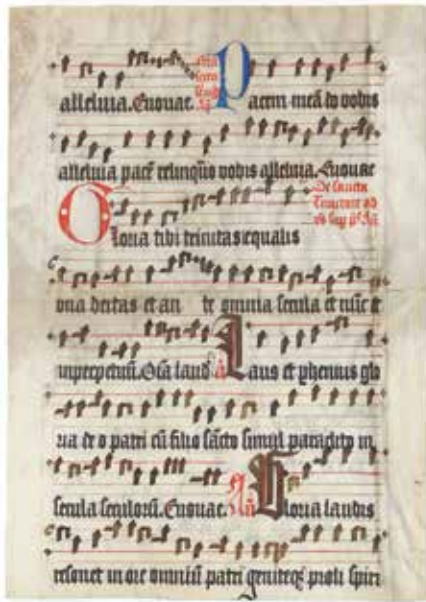 alleluia. Euouae. Pacem meā do vobis
alleluia pacē relinquo vobis alleluia. Euouae
De sancta
Trinitate ad
Gloria tibi trinitas equalis
una deitas et an te omnia secula et nūc et
inperpetuū. Laus et phennis glo
ria deo patri cū filio sācto simul paraclito in
secula seculorū. Euouae. Gloria laudis
resonet in ore omniū patri geniteqz proli spiri